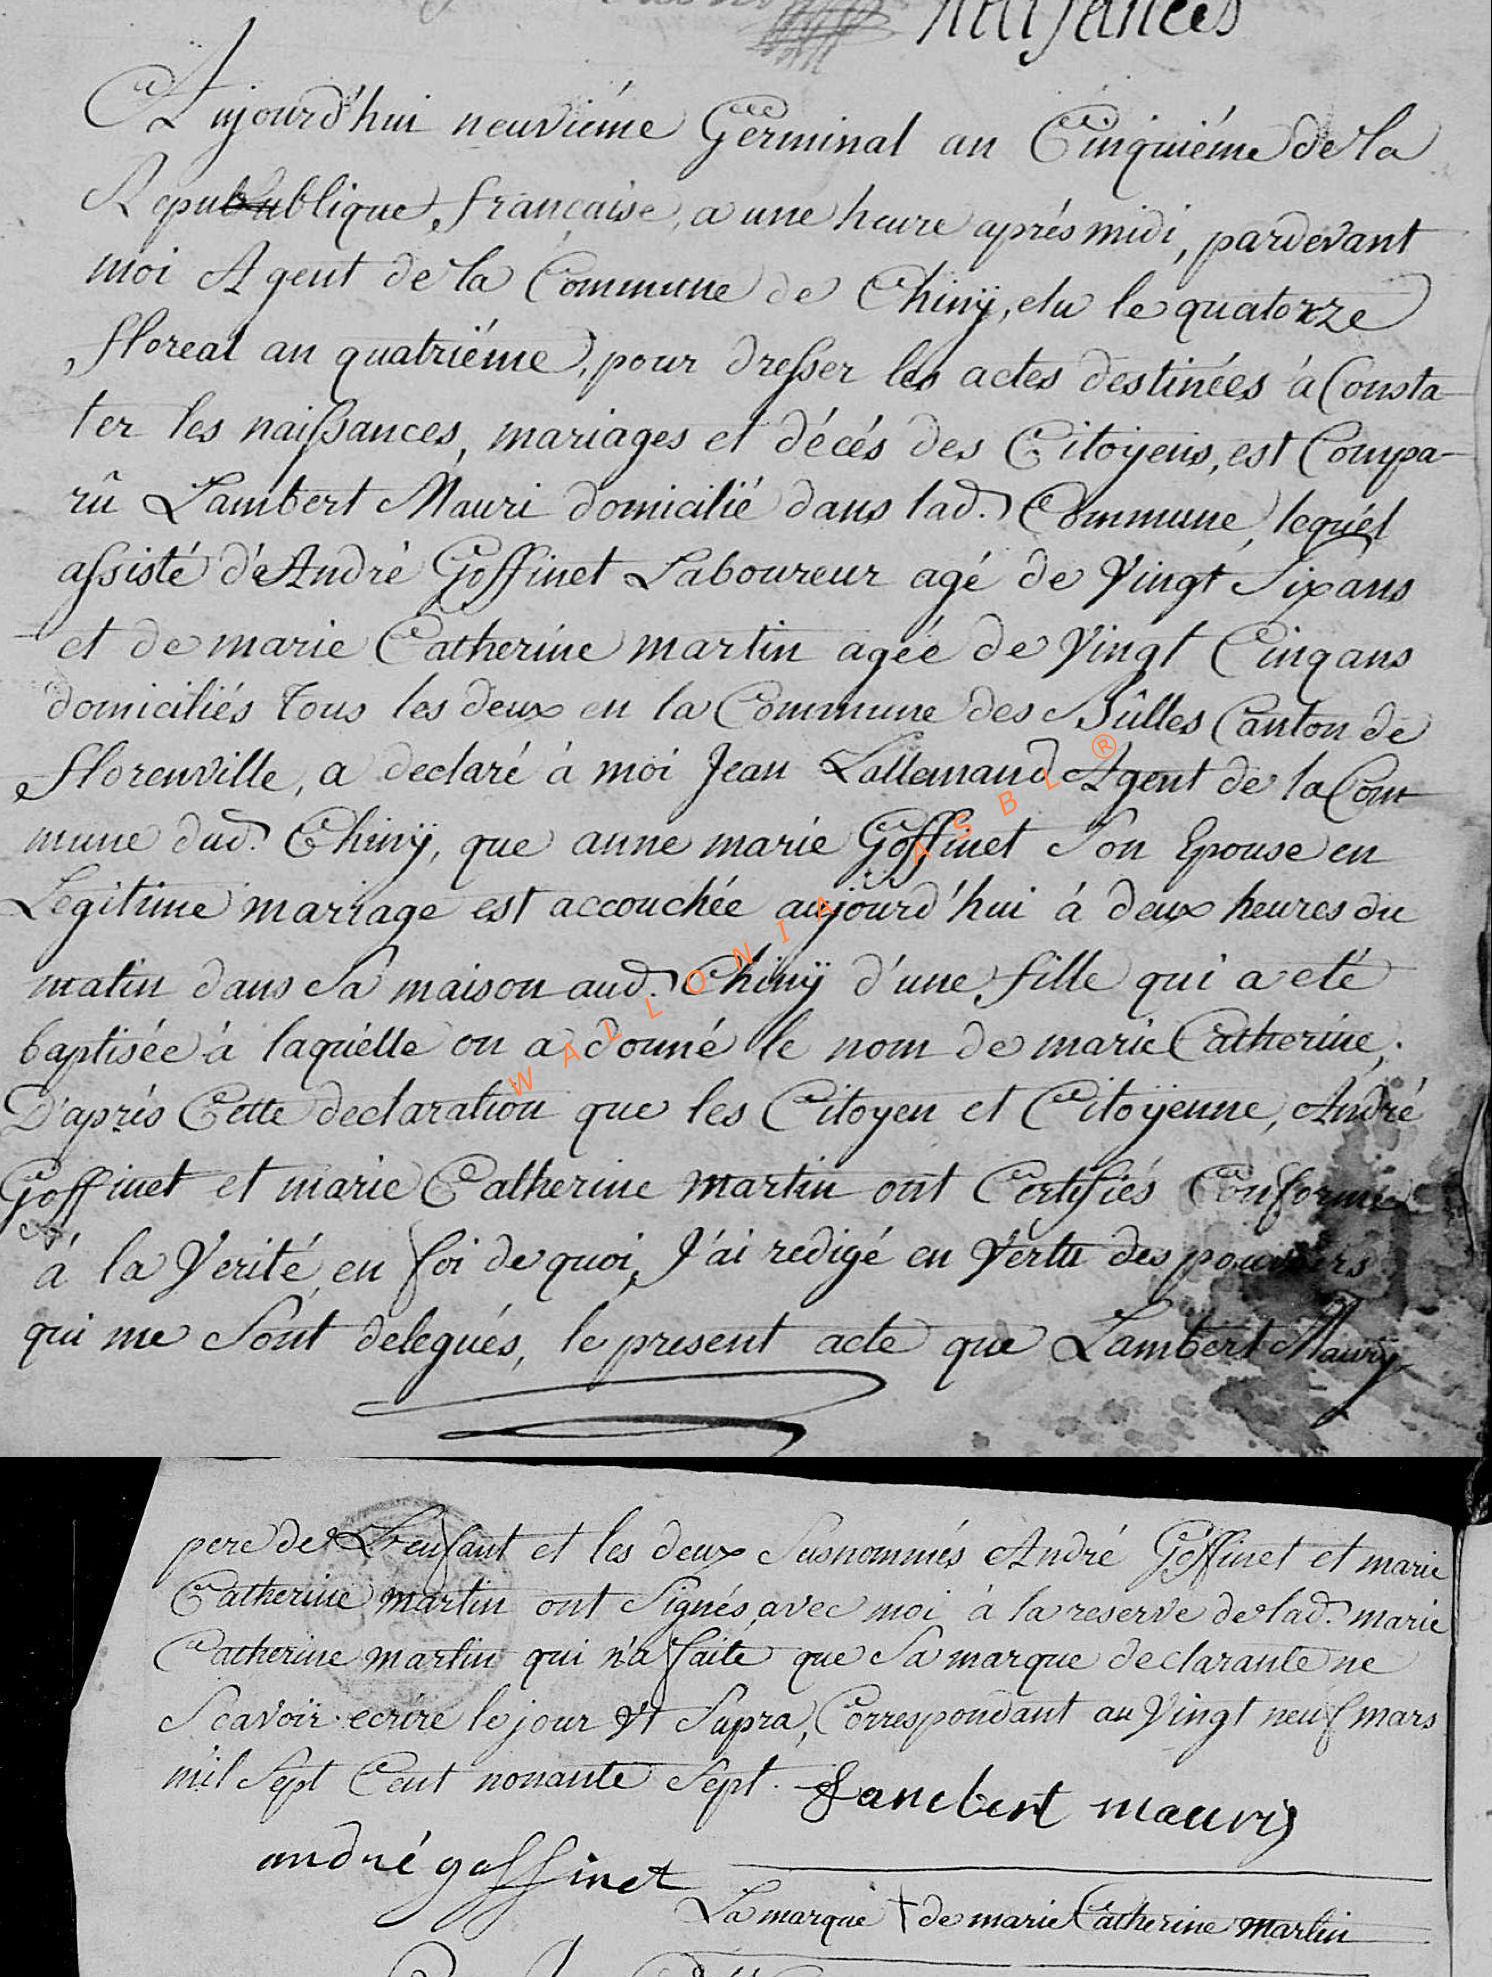 Naissances
Aujourd'hui neuviéme Germinal an Cinquiéme de la
Republique française, a une heure aprés midi, pardevant
moi Agent de la Commune de Chinÿ, elu le quatorze
floreal an quatriéme, pour dresser les actes destinées à Consta-
ter les naissances, mariages et décés des Citoyens, est Compa-
rû Lambert Mauri domicilié dans lad. Commune, lequél
assisté d'André Goffinet Laboureur agé de Vingt Six ans
et de marie Catherine martin agée de Vingt Cinq ans
domiciliés Tous les deux en la Commune des Bûlles Canton de
florenville, a declaré à moi Jean Lallemand Agent de la Com
mune dud. Chinÿ, que anne marie Goffinet Son Epouse en
Legitime mariage est accouchée aujourd'hui à deux heures du
matin dans Sa maison aud. Chinÿ d'une fille qui a eté
baptisée à laquélle on a donné le nom de marie Catherine,
D'aprés Cette declaration que les Citoyen et Citoÿenne, André
Goffinet et marie Catherine martin ont Certifiés Conforme
à la Verité, en foi de quoi, J'ai redigé en Vertu des pouvoirs
qui me Sont delegués, le present acte que Lambert Maury
WALLONIA ASBL ®
pere de L'enfant et les deux Susnommés André Goffinet et marie
Catherine martin ont Signés avec moi à la reserve de lad. marie
Catherine martin qui n'a faite que Sa marque declarante ne
Scavoir ecrire le jour Vt Supra, Correspondant au Vingt neuf mars
mil Sept Cent nonante Sept. Lanebert mauri
andré goffinet
La marque † de marie Catherine martin